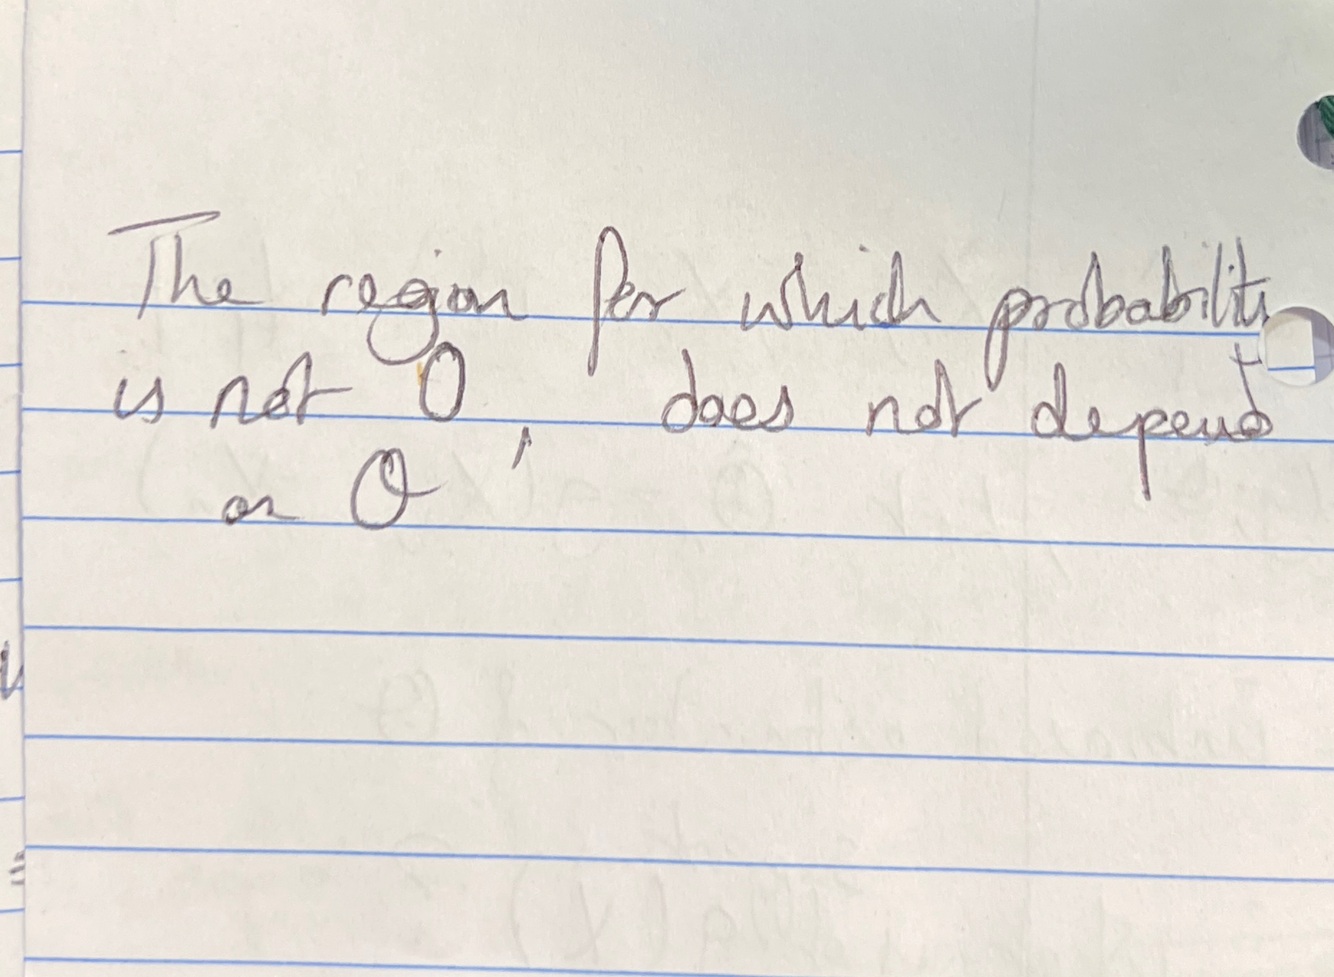 The region for which probability
is not 0, does not depend
on θ